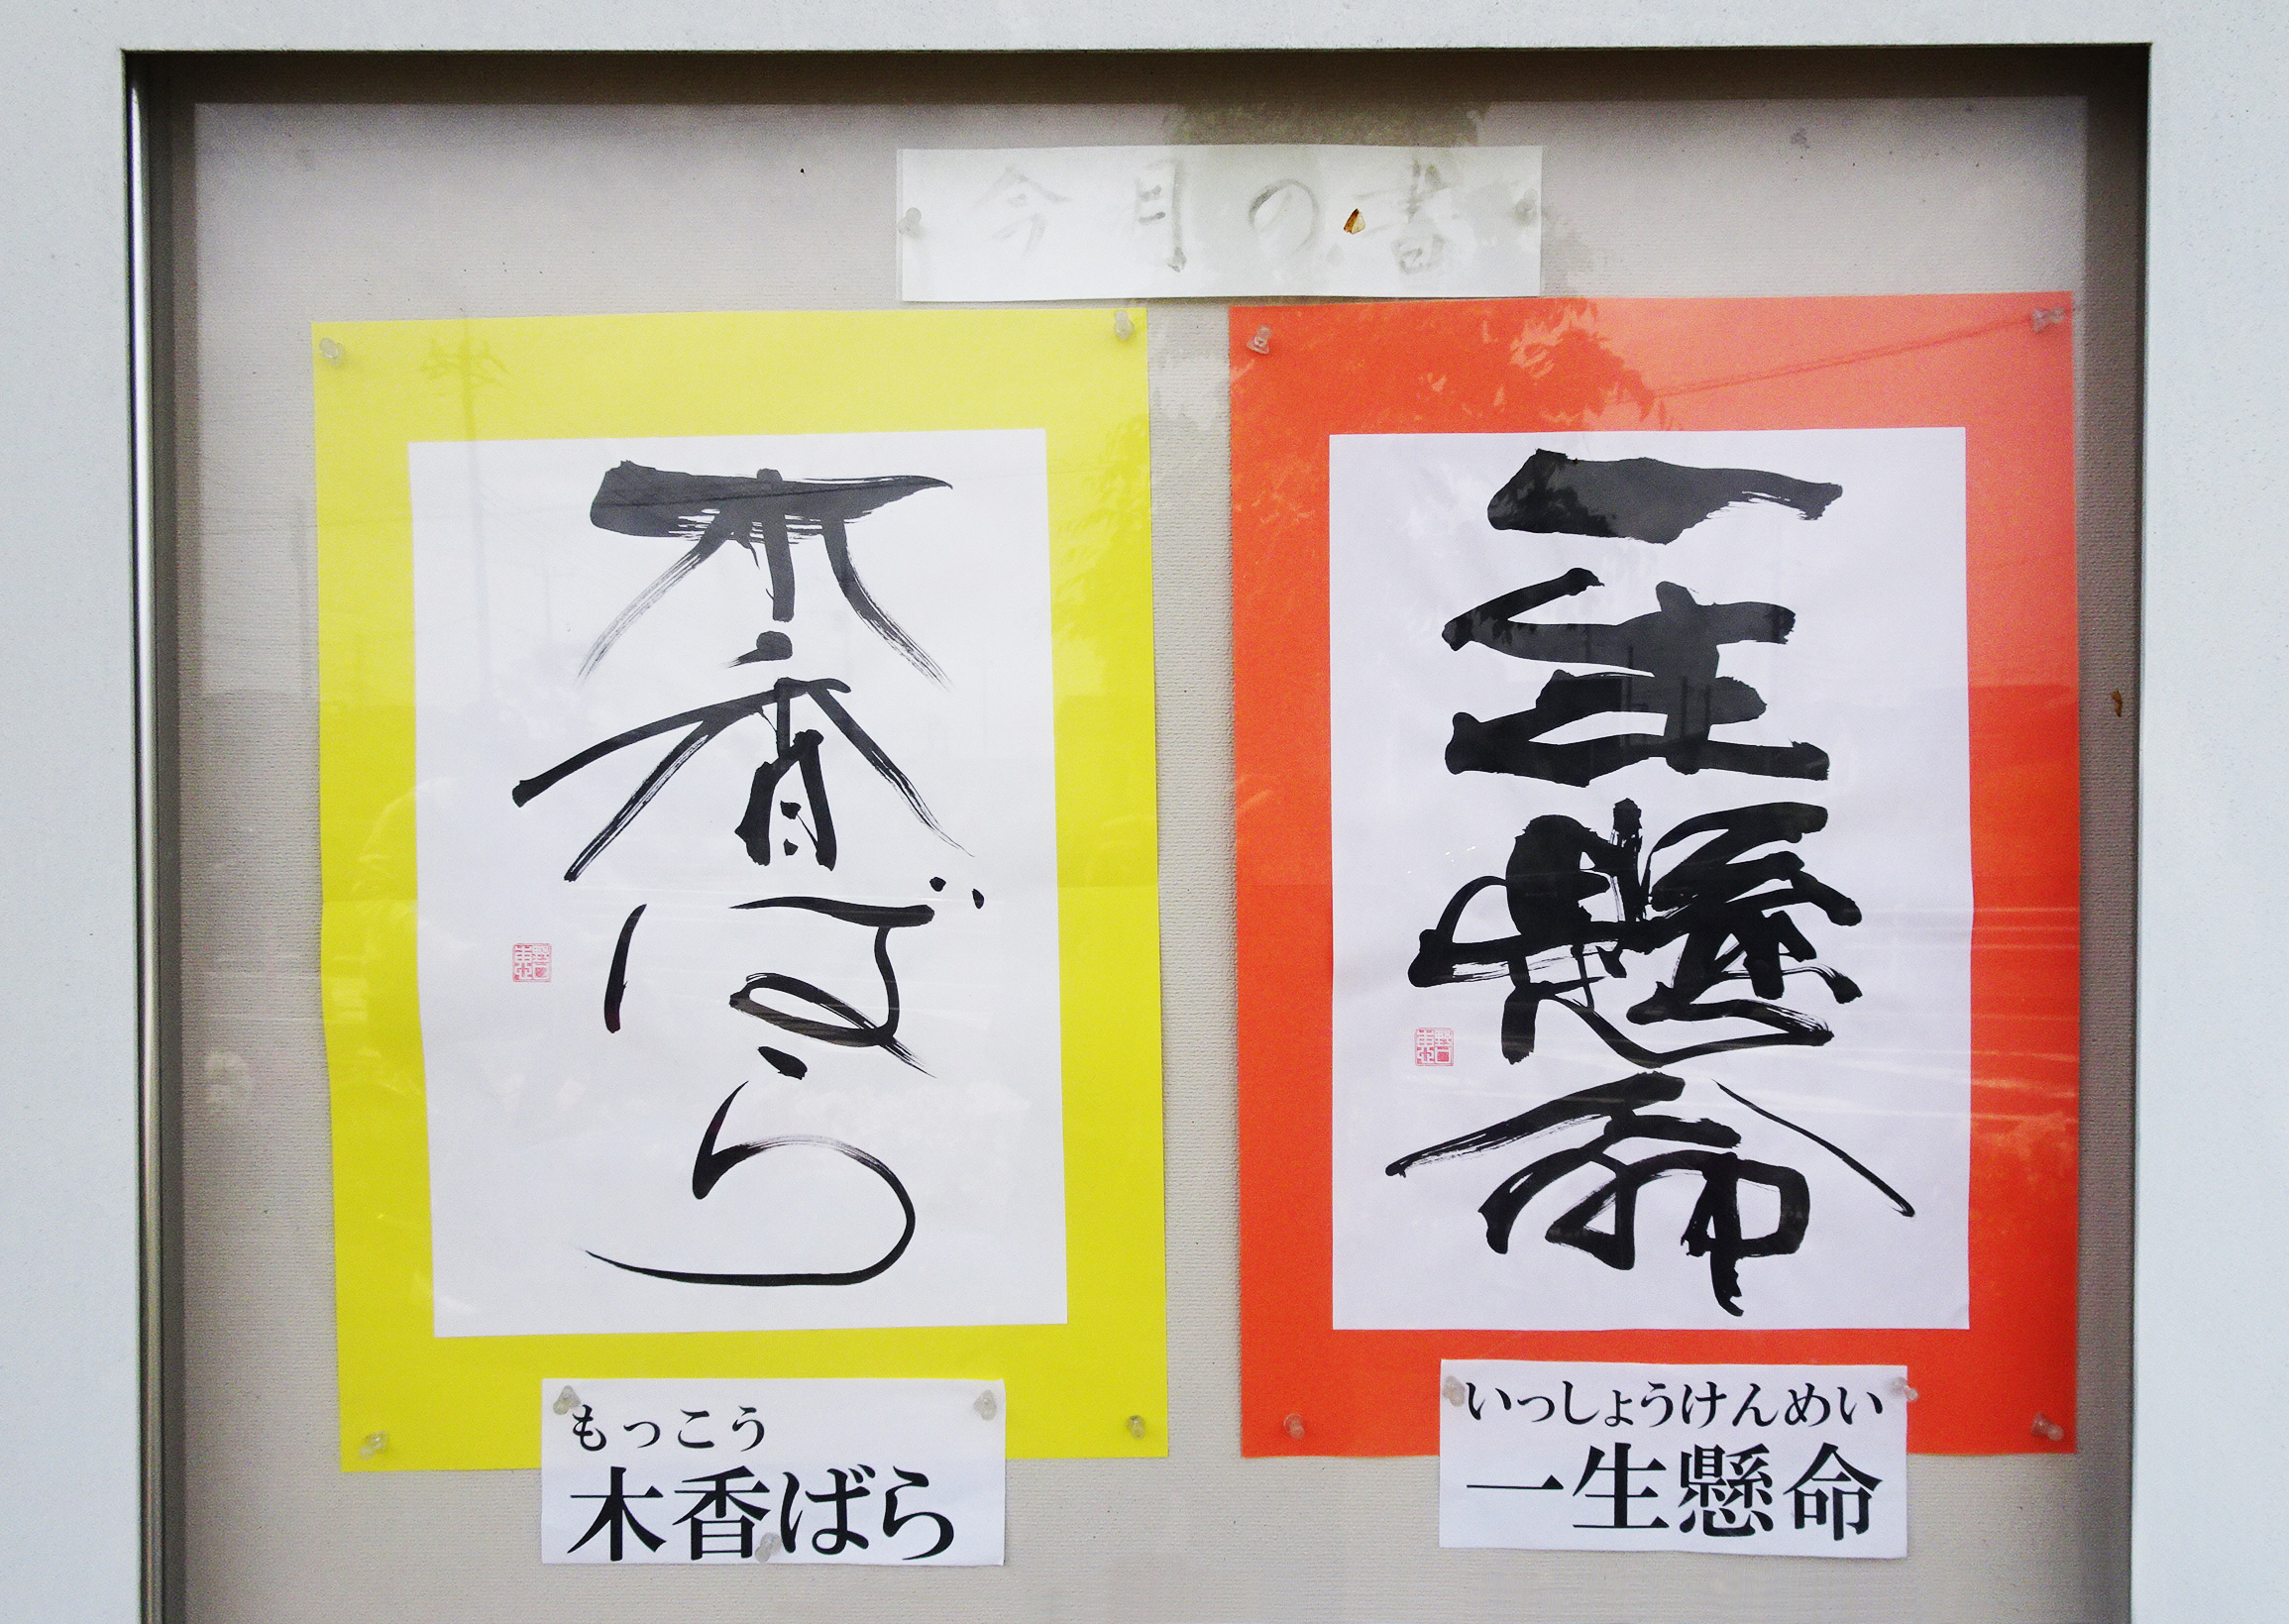 今月の書
木香ばら
もっこう
木香ばら
一生懸命
いっしょうけんめい
一生懸命